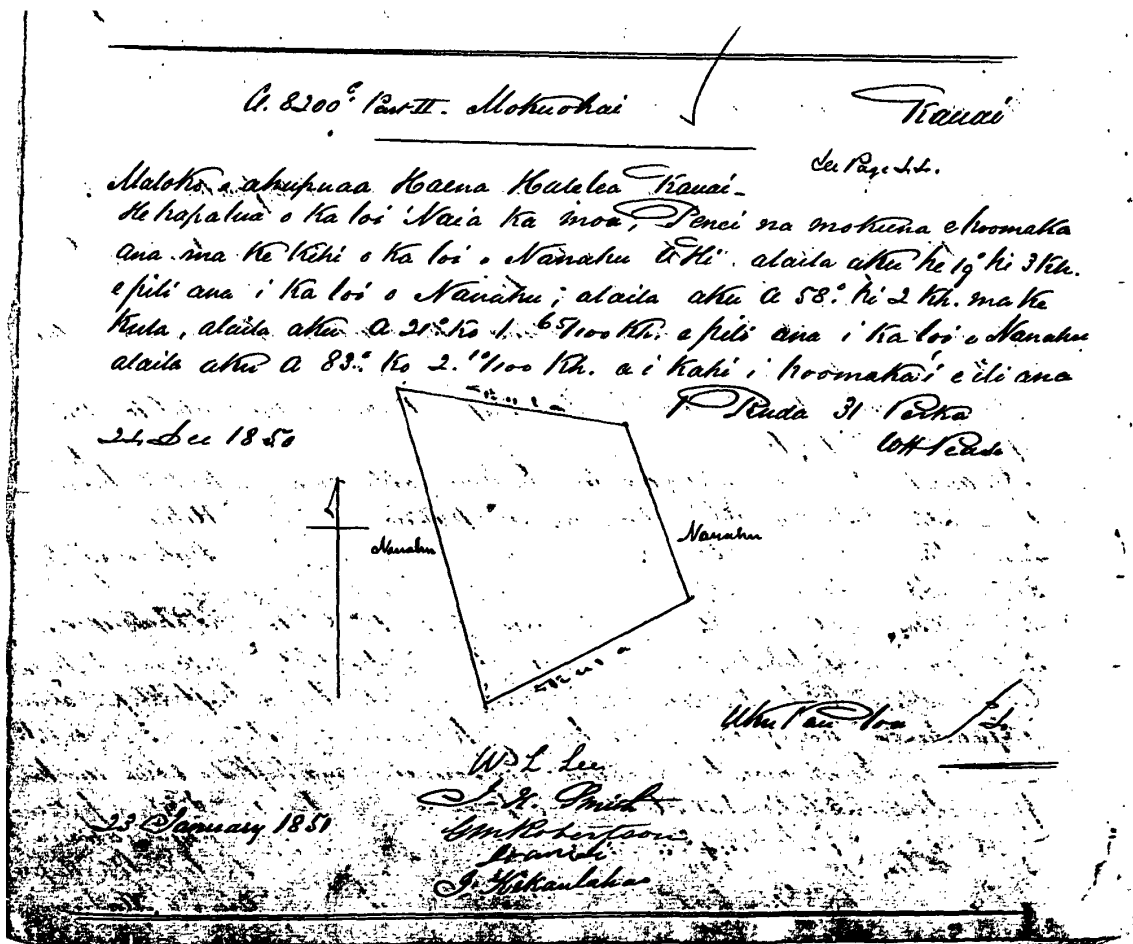 A. 8200C. Part II. Mokuohai Kauai
See Page
Maloko o ahupuaa Haena Halelea Kauai_
He hapalua o ka loi Naia ka inoa, Penei na mokuna e hoomaka
ana ma ke kihi o ka loi o Nanahu alaila aku he 19° hi 3 Kh.
e pili ana i ka loi o Nanahu; alaila aku A 58° hi 2 Kh. ma ke
Kula, alaila aku A 21° ko 1. 65/100 Kh. e pili ana i ka loi o Nanahu
alaila aku A 83° ko 2. 10/100 Kh. a i kahi i hoomakai e ili ana
Ruda 31 Perka
Dec 1850
Nanahu
Nanahu
Uku Pau Loa
W L Lee
J. H. Smith
GM Robertson
23 January 1851
J. Kekaulahao